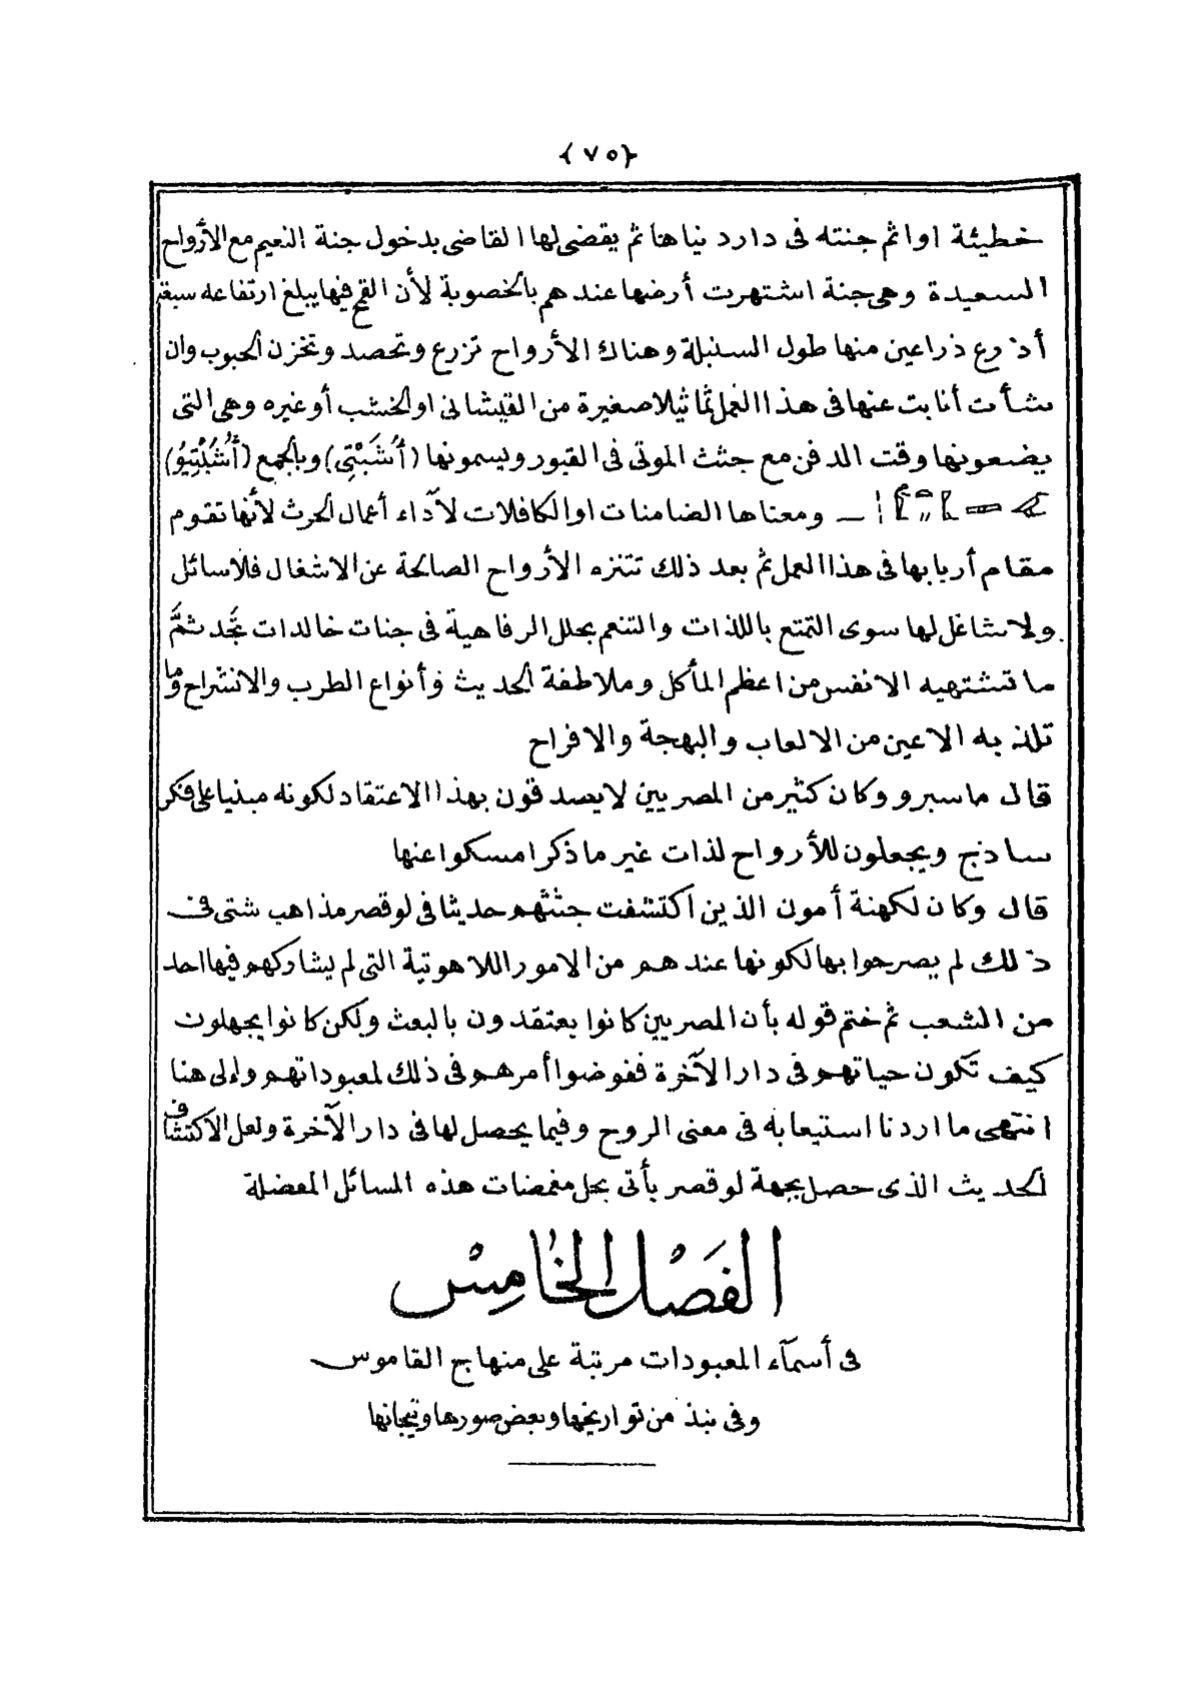 {٧٥}
خطيئة اواثم جنته فى دار دنياها ثم يقضى لها القاضى بدخول جنة النعيم مع الأرواح
السعيدة وهى جنة اشتهرت أرضها عندهم بالخصوبة لأن القمح فيها يبلغ ارتفاعه سبعة
أذرع ذراعين منها طول السنبلة وهناك الأرواح تزرع وتحصد وتخزن الحبوب وان
شأت أنابت عنها فى هذا العمل تماثيلا صغيرة من القيشانى او الخشب أوغيره وهى التى
يضعونها وقت الدفن مع جثث الموتى فى القبور ويسمونها (أُشَبْتِى) وبالجمع (أُشَبْتِيُو)
ــ ومعناها الضامنات او الكافلات لآداء أعمال الحرث لأنها تقوم
مقام أربابها فى هذا العمل ثم بعد ذلك تتنزه الأرواح الصالحة عن الاشغال فلاسائل
ولاشاغل لها سوى التمتع باللذات والتنعم بحلل الرفاهية فى جنات خالدات تَجِد ثمَّ
ماتشتهيه الانفس من اعظم المأكل وملاطفة الحديث وأنواع الطرب والانشراح وما
تلذ به الاعين من الالعاب والبهجة والافراح
قال ماسبرو وكان كثير من المصريين لايصدقون بهذا الاعتقاد لكونه مبنيا على فكر
ساذج ويجعلون للأرواح لذات غير ماذكر امسكوا عنها
قال وكان لكهنة أمون الذين اكتشفت جثثهم حديثا فى لوقصر مذاهب شتى فى
ذلك لم يصرحوا بها لكونها عندهم من الامور اللاهوتية التى لم يشاركهم فيها احد
من الشعب ثم ختم قوله بأن المصريين كانوا يعتقدون بالبعث ولكن كانوا يجهلون
كيف تكون حياتهم فى دار الآخرة ففوضوا أمرهم فى ذلك لمعبوداتهم والى هنا
انتهى ما اردنا استيعابه فى معنى الروح وفيما يحصل لها فى دار الآخرة ولعل الاكتشاف
الحديث الذى حصل بجهة لوقصر يأتى بحل مغمضات هذه المسائل المعضلة
الفَصْل الخَامِسْ
فى أسمآء المعبودات مرتبة على منهاج القاموس
وفى نبذ من تواريخها وبعض صورها وتيجانها